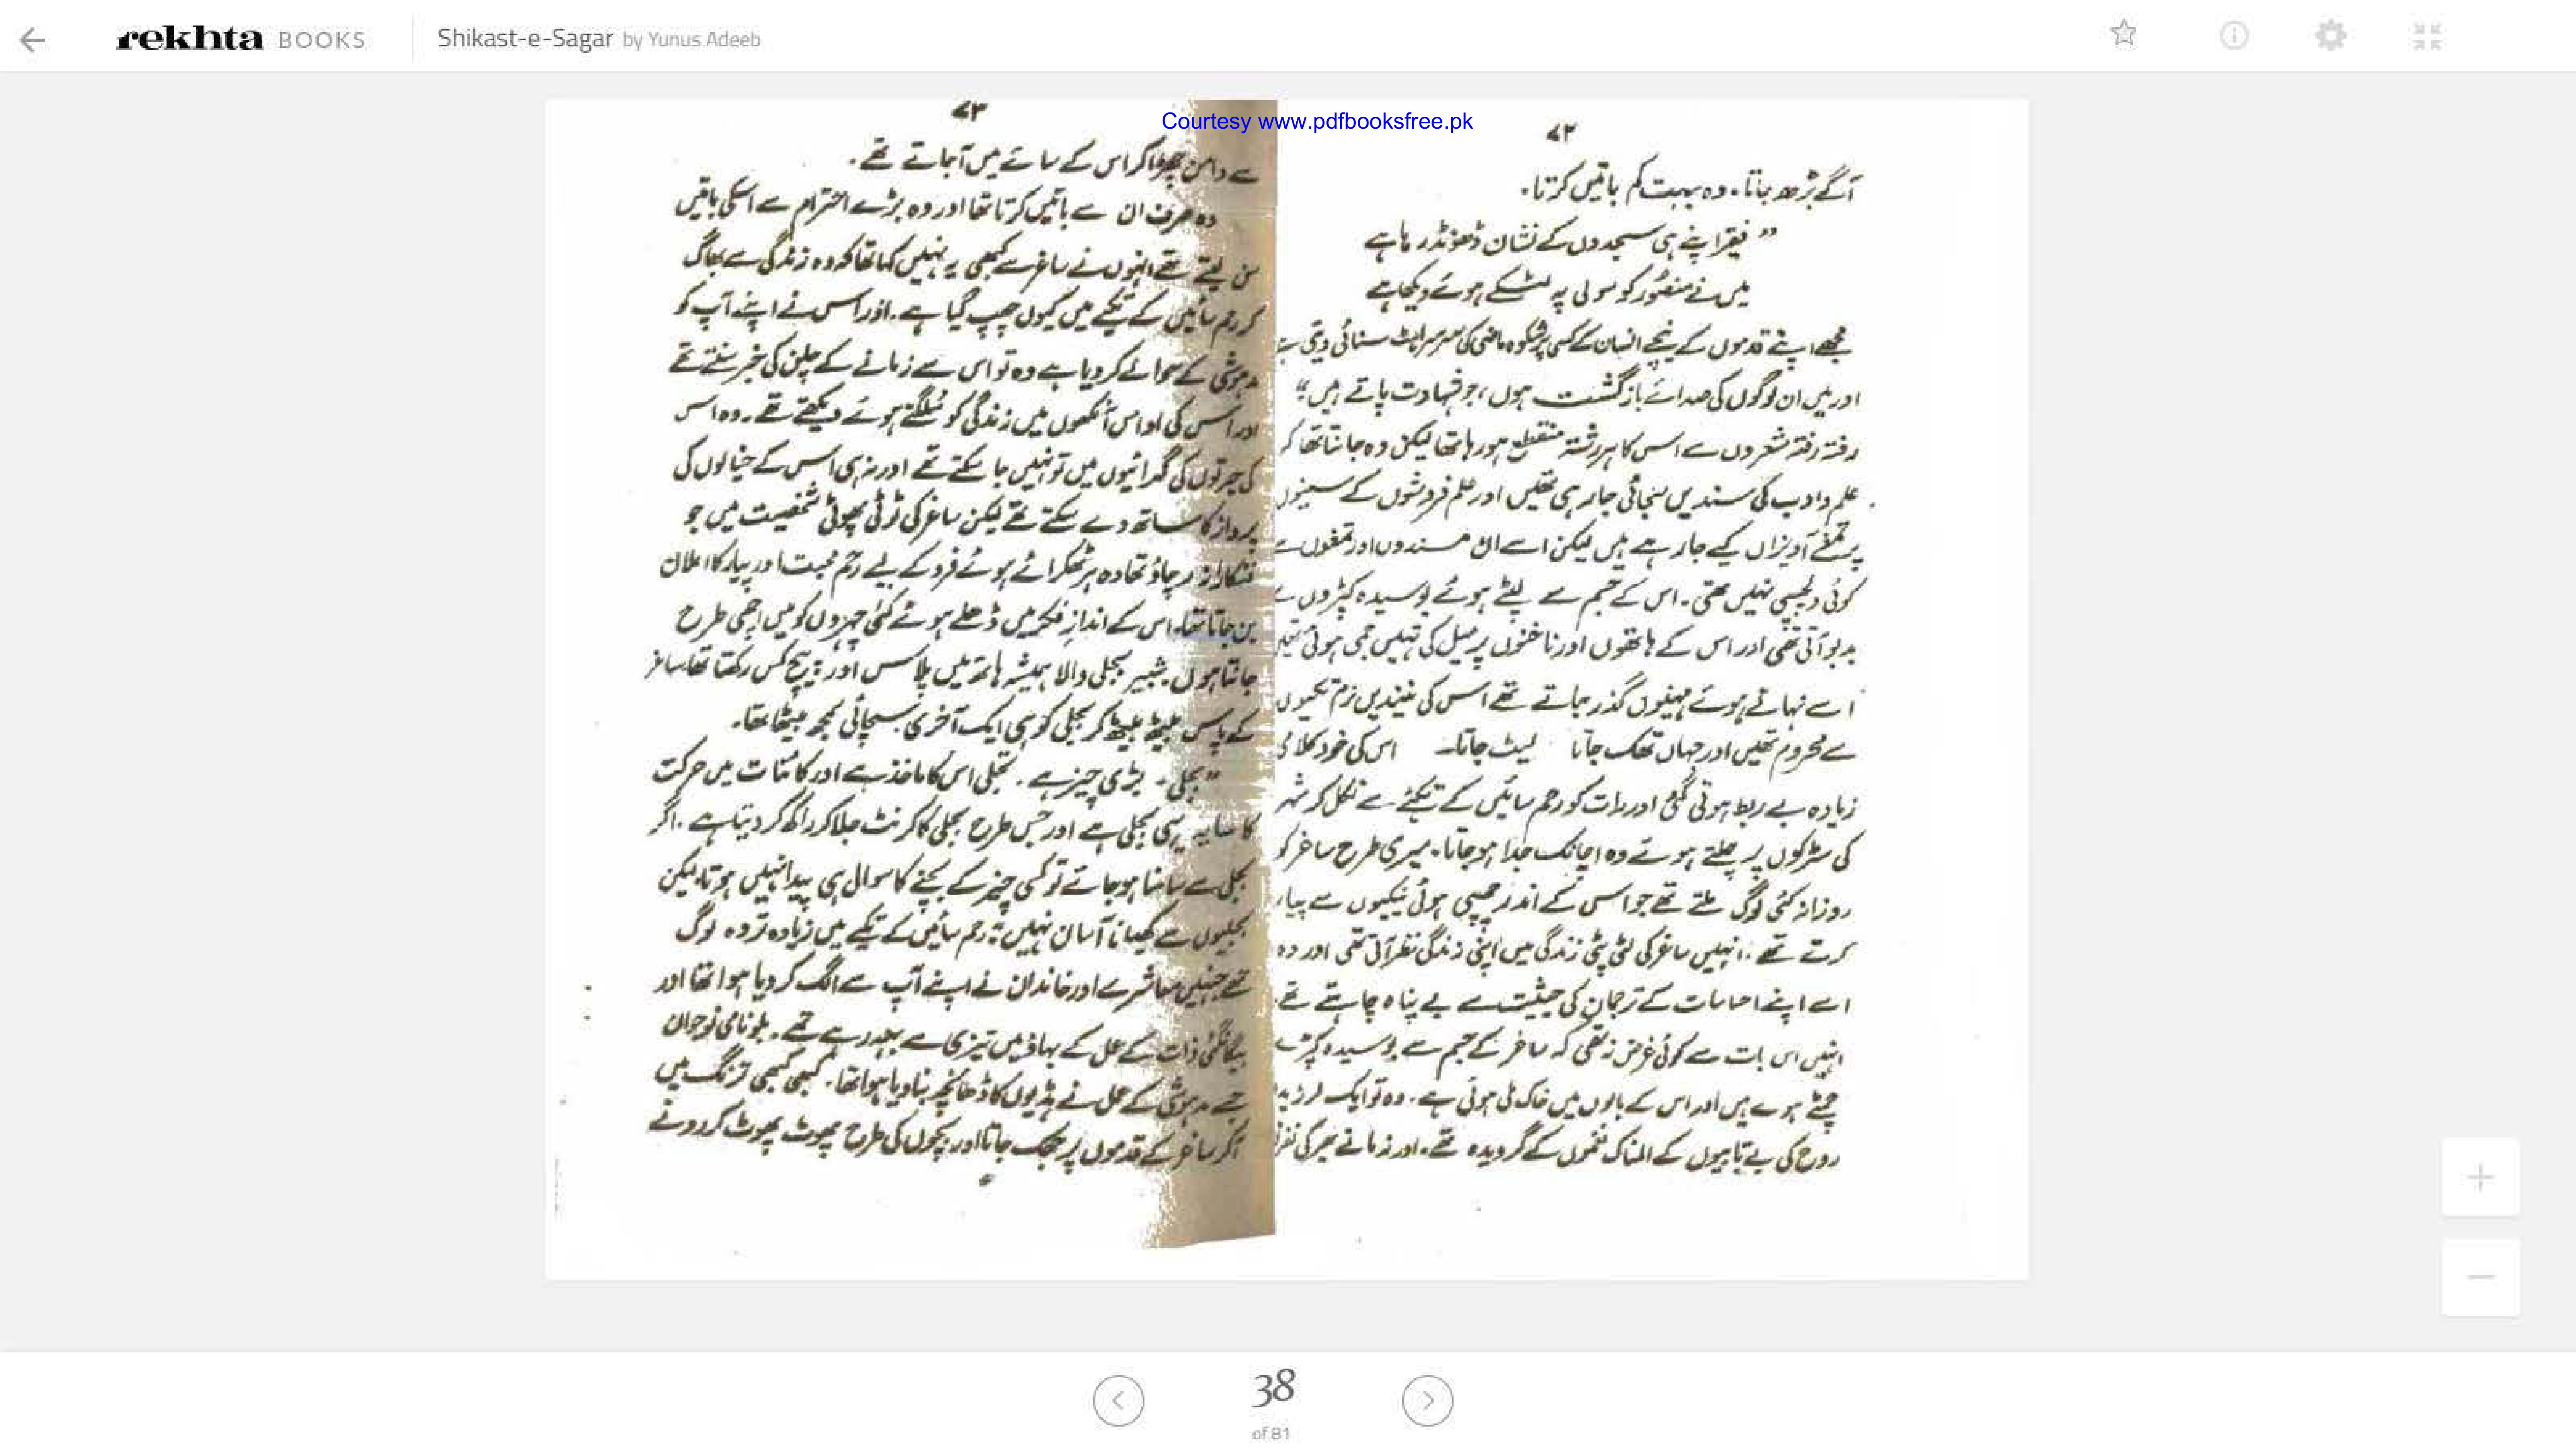 rekhta BOOKS
Shikast-e-Sagar by Yunus Adeeb
Courtesy www.pdfbooksfree.pk
۷۲
آگے بڑھ جاتا۔ وہ بہت کم باتیں کرتا۔
” فیقرا پنے ہی سجدوں کے نشان ڈھونڈ رہا ہے
میں نے منصُور کو سولی پہ لٹکے ہوئے دیکھا ہے
مجھے اپنے قدموں کے نیچے انسان کے کسی پرشکوہ ماضی کی سرسراہٹ سنائی دیتی ہے
اور میں ان لوگوں کی صدائے بازگشت ہوں، جو شہادت پاتے ہیں“
رفتہ رفتہ شعروں سے اس کا ہر رشتہ منقطع ہو رہا تھا لیکن وہ جانتا تھا کہ
علم و ادب کی سندیں پہنچائی جا رہی تھیں اور علم فروشوں کے سینوں
پر تمغے آویزاں کیے جا رہے ہیں لیکن اسے ان مسندوں اور تمغوں سے
کوئی دلچسپی نہیں تھی۔ اس کے جسم سے لپٹے ہوئے بوسیدہ کپڑوں سے
بدبو آتی تھی اور اس کے ہاتھوں اور ناخنوں پر میل کی تہیں جمی ہوئی تھیں
اسے نہاتے ہوئے مہینوں گذر جاتے تھے اس کی نیندیں نرم تکیوں
سے محروم تھیں اور جہاں تھک جاتا لیٹ جاتا۔ اس کی خود کلامی
زیادہ بے ربط ہوتی گئی اور رات کو رحم سائیں کے تکئے سے نکل کر شہر
کی سڑکوں پر چلتے ہوئے وہ اچانک جُدا ہو جاتا۔ میری طرح ساغر کو
روزانہ کئی لوگ ملتے تھے جو اس کے اندر چھپی ہوئی نیکیوں سے پیار
کرتے تھے۔ انہیں ساغر کی لٹی پٹی زندگی میں اپنی زندگی نظر آتی تھی اور وہ
اسے اپنے احساسات کے ترجمان کی حیثیت سے بے پناہ چاہتے تھے۔
انہیں اس بات سے کوئی غرض نہ تھی کہ ساغر کے جسم سے بوسیدہ کپڑے
چمٹے ہوے ہیں اور اس کے بالوں میں خاک ملی ہوئی ہے۔ وہ تو ایک لرزیدہ
روح کی بے تابیوں کے المناک نغموں کے گرویدہ تھے۔ اور زمانے بھر کی نفرتوں
۷۳
سے دامن چھڑا کر اس کے سائے میں آجاتے تھے۔
وہ صرف ان سے باتیں کرتا تھا اور وہ بڑے احترام سے اسکی باتیں
سن لیتے تھے انہوں نے ساغر سے کبھی یہ نہیں کہا تھا کہ وہ زندگی سے بھاگ
کر رحم سائیں کے تکیے میں کیوں چھپ گیا ہے۔ اور اس نے اپنے آپ کو
مدہوشی کے حوالے کر دیا ہے وہ تو اس سے زمانے کے چلن کی خبر سنتے تھے
اور اس کی اداس آنکھوں میں زندگی کو سُلگتے ہوئے دیکھتے تھے۔ وہ اس
کی حیرتوں کی گہرائیوں میں تو نہیں جا سکتے تھے اور نہ ہی اس کے خیالوں کی
پرواز کا ساتھ دے سکتے تھے لیکن ساغر کی ٹوٹی پھوٹی شخصیت میں جو
فنکارانہ رچاؤ تھا وہ ہر ٹھکرائے ہوئے فرد کے لیے رحم محبت اور پیار کا اعلان
بن جاتا تھا۔ اس کے اندازِ فکر میں ڈھلے ہوئے کئی چہروں کو میں اچھی طرح
جانتا ہوں شبیر بجلی والا ہمیشہ ہاتھ میں پلاس اور پیچ کس رکھتا تھا ساغر
کے پاس بیٹھ بیٹھ کر بجلی کو ہی ایک آخری سچائی سمجھ بیٹھا تھا۔
” بجلی۔ بڑی چیز ہے۔ تجلی اس کا ماخذ ہے اور کائنات میں حرکت
کا سایہ یہی بجلی ہے اور جس طرح بجلی کا کرنٹ جلا کر راکھ کر دیتا ہے۔ اگر
تجلی سے سامنا ہو جائے تو کسی چیز کے بچنے کا سوال ہی پیدا نہیں ہوتا لیکن
بجلیوں سے کھیلنا آسان نہیں“ رحم سائیں کے تکیے میں زیادہ تر وہ لوگ
تھے جنہیں معاشرے اور خاندان نے اپنے آپ سے الگ کر دیا ہوا تھا اور
بیگانگئی ذات کے عمل کے بہاؤ میں تیزی سے بہہ رہے تھے۔ بلو نامی نوجوان
جسے مدہوشی کے عمل نے ہڈیوں کا ڈھانچہ بنا دیا ہوا تھا۔ کبھی کبھی ترنگ میں
آکر ساغر کے قدموں پر جھک جاتا اور بچوں کی طرح پھوٹ پھوٹ کر رونے
38
of 81